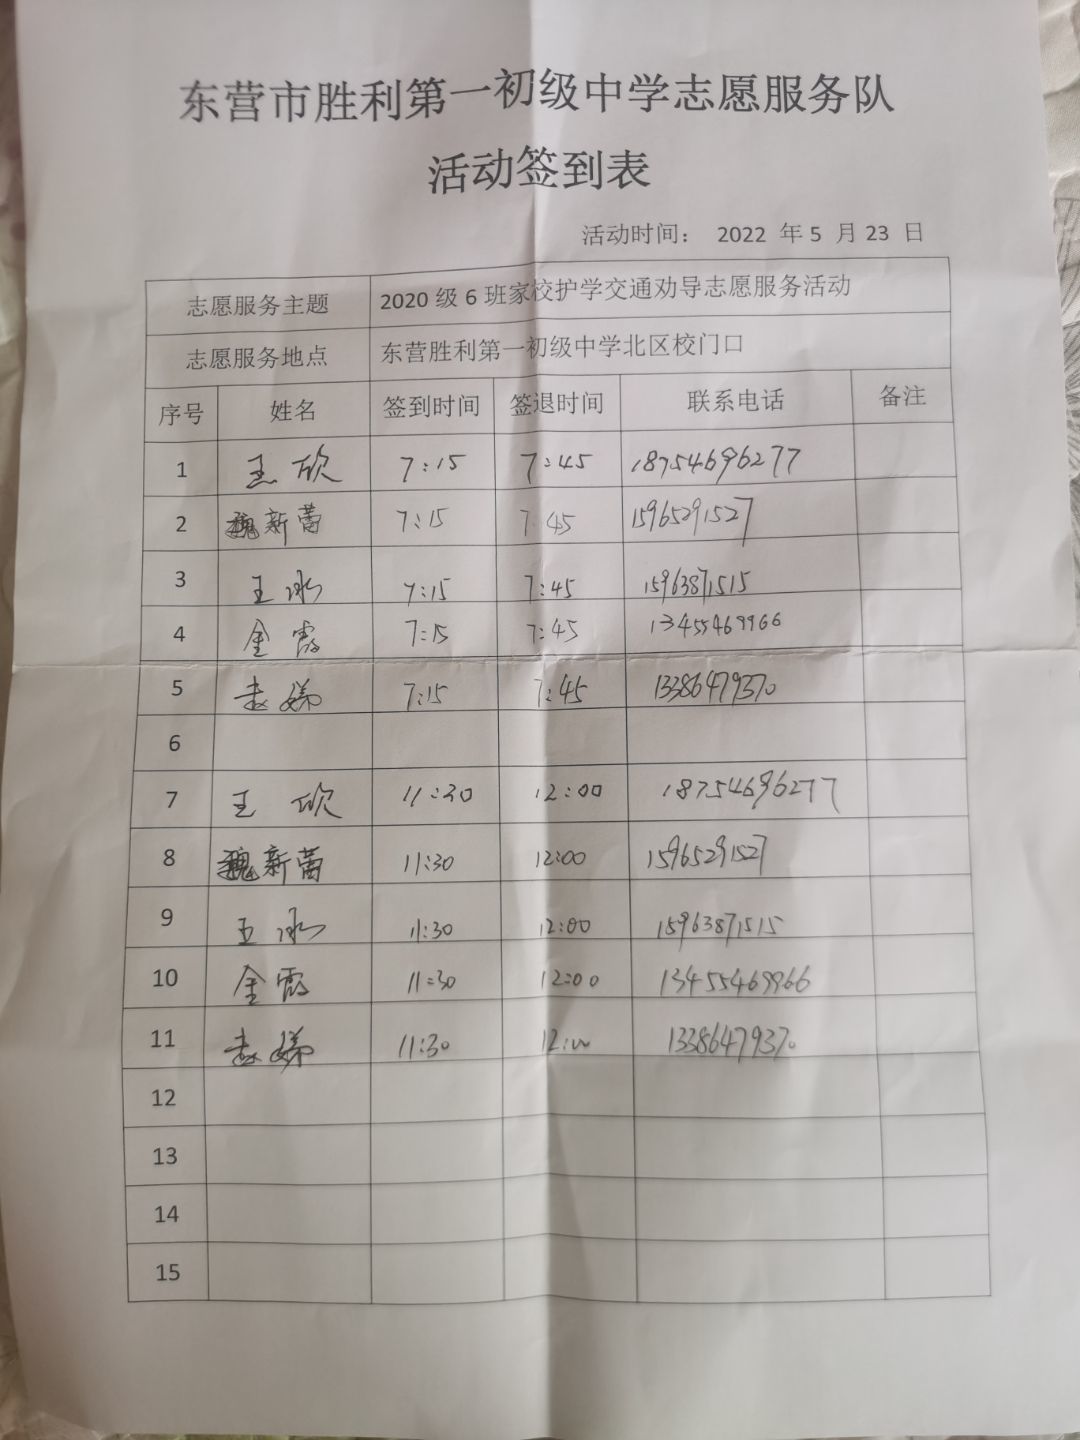 东营市胜利第一初级中学志愿服务队
活动签到表
活动时间： 2022 年 5 月 23 日
志愿服务主题 2020 级 6 班家校护学交通劝导志愿服务活动
志愿服务地点 东营胜利第一初级中学北区校门口
序号 姓名 签到时间 签退时间 联系电话 备注
1 王欣 7:15 7:45 18754696277
2 魏新蕾 7:15 7:45 15965291527
3 王冰 7:15 7:45 15963871515
4 金霞 7:15 7:45 13455469966
5 赵娣 7:15 7:45 13386479370
6
7 王欣 11:30 12:00 18754696277
8 魏新蕾 11:30 12:00 15965291527
9 王冰 11:30 12:00 15963871515
10 金霞 11:30 12:00 13455469966
11 赵娣 11:30 12:00 13386479370
12
13
14
15